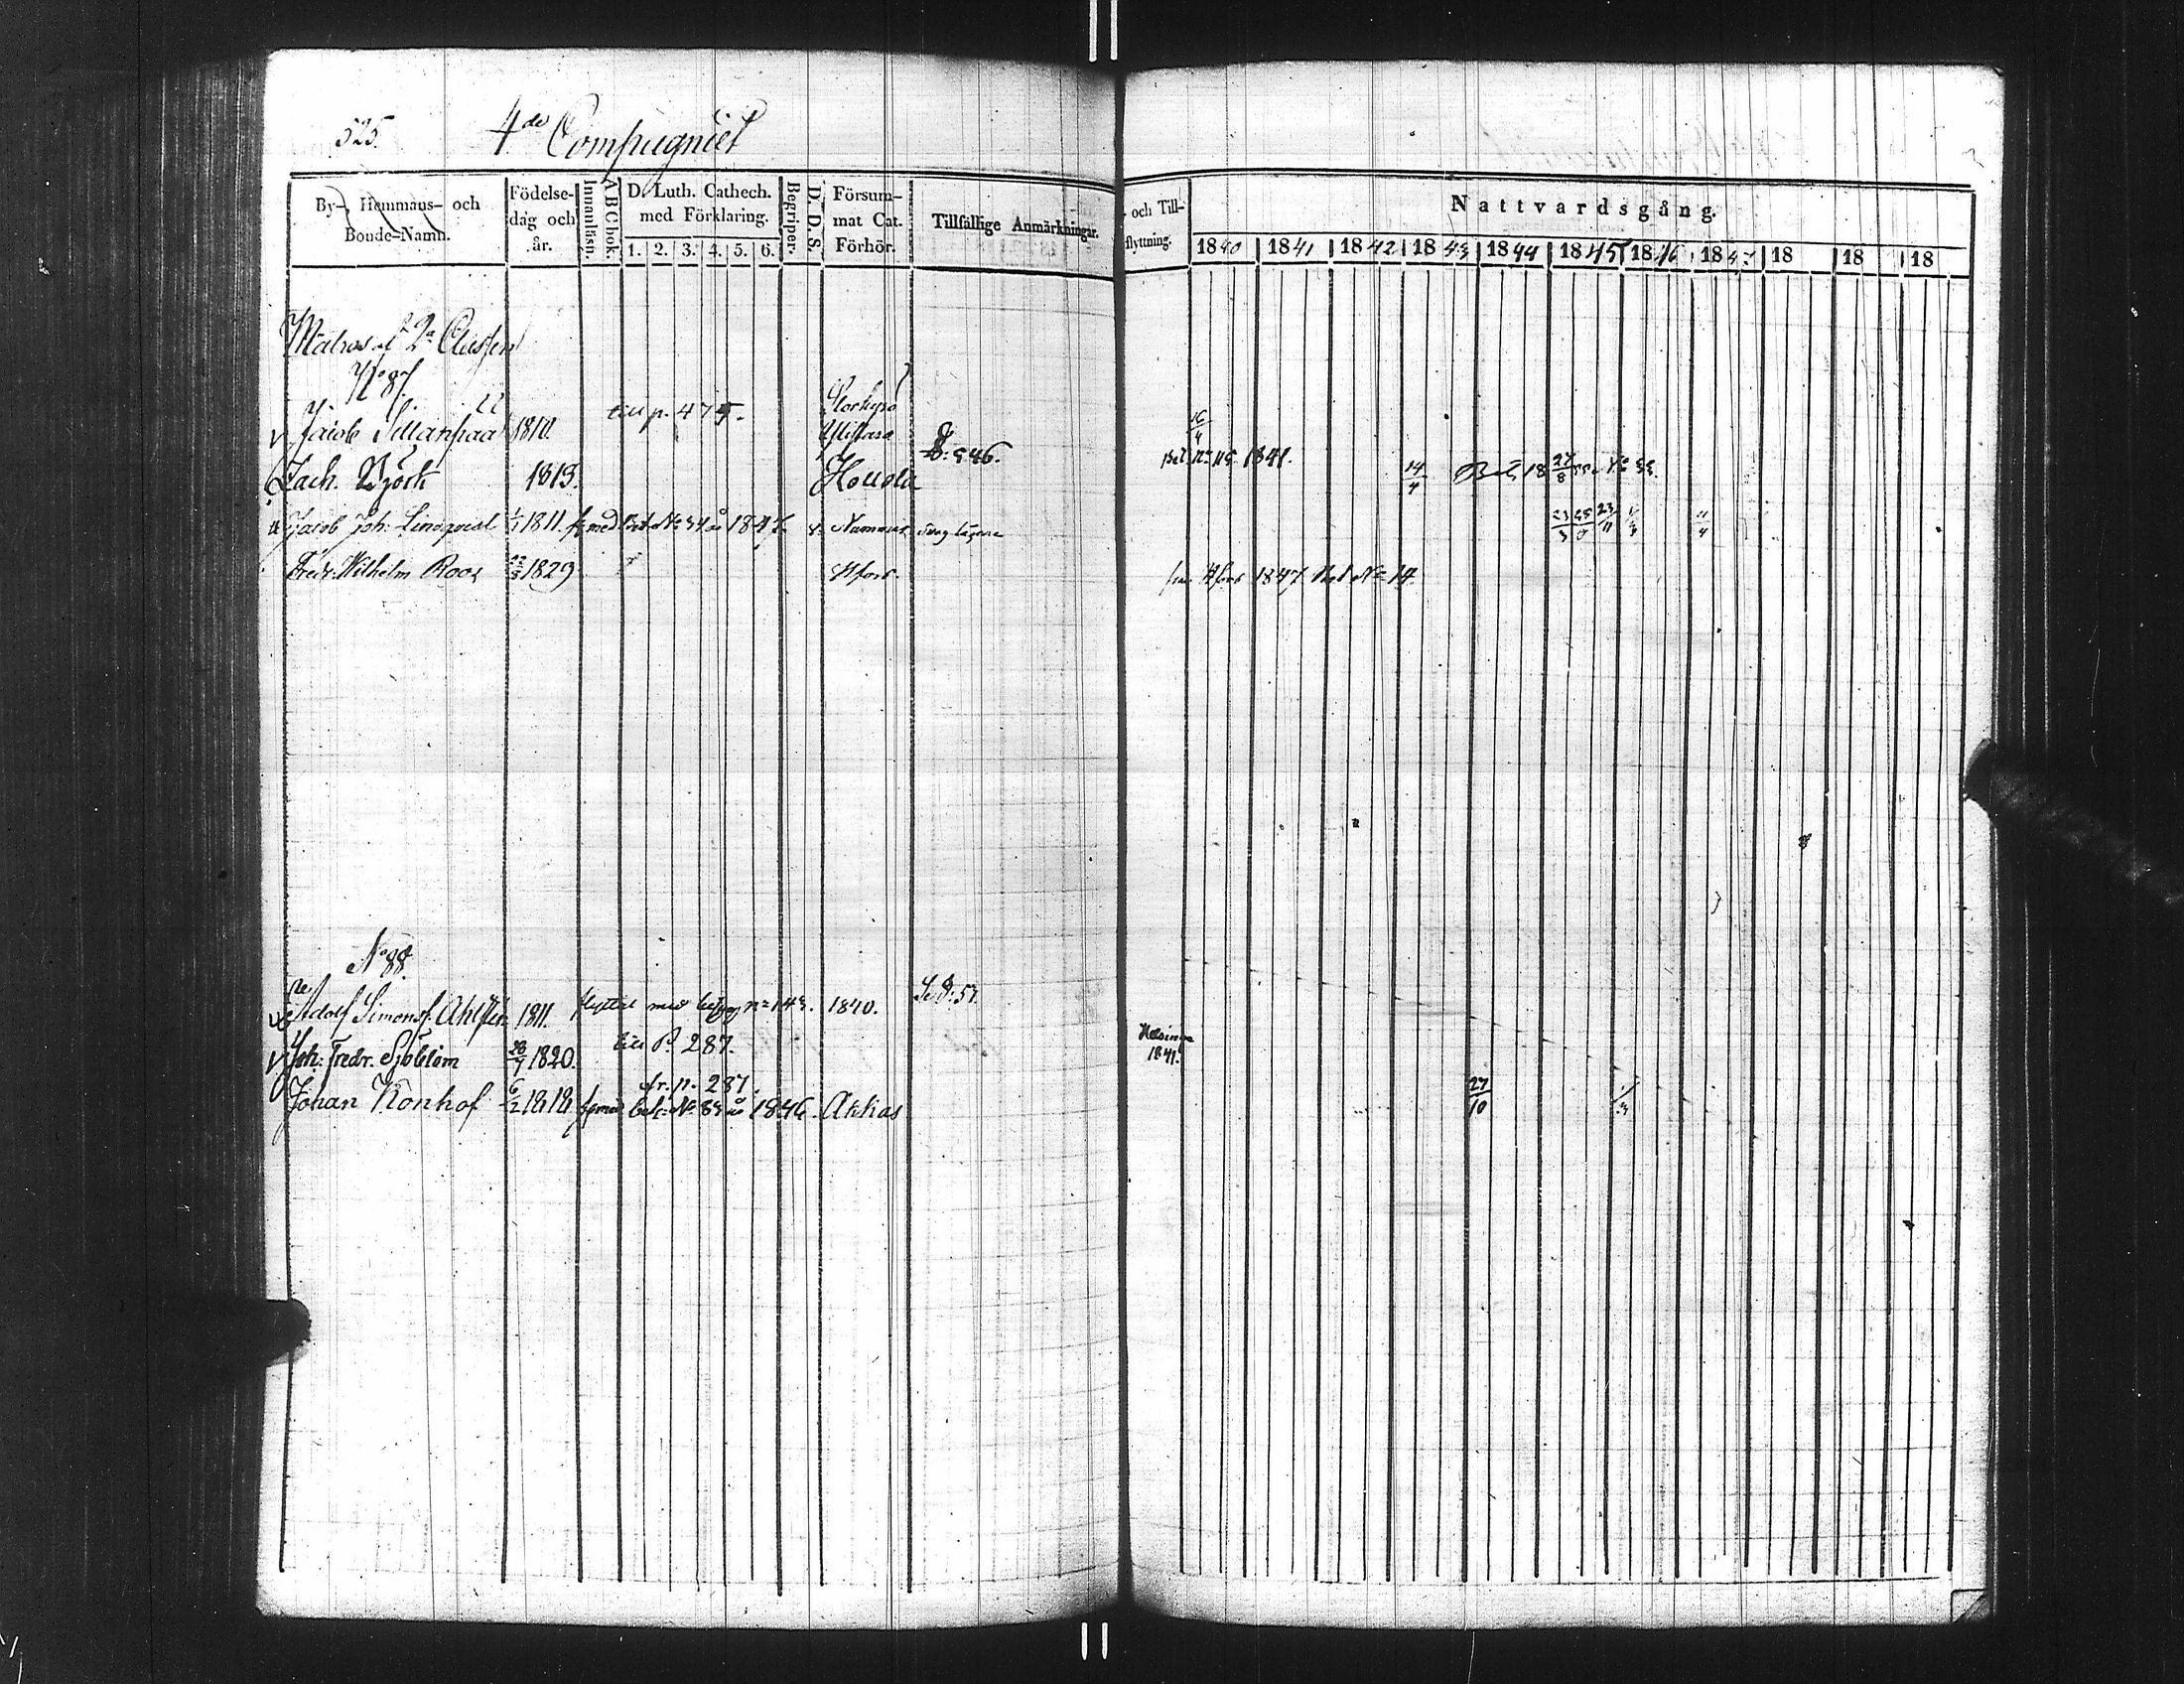 525.
4de Compagniet
By-, Hemmans- och Bonde-Namn.
Födelse-dag och år.
Innanläsn.
A B C bok.
D. Luth. Cathech. med Förklaring.
1. 2. 3. 4. 5. 6.
Begriper.
D. D. S.
Försum-mat Cat. Förhör.
Tillfällige Anmärkningar.
och Till-flyttning.
Nattvardsgång.
1840 1841 1842 1843 1844 1845 1846 1847 18 18 18
Matros af 2a Classen
No 87.
Jacob Sillanpää 1810. till p. 475. Storkyro Ylistaro 16/4
Zach. Björk 1813. Houola 546. Bet. No 115 1841. 14/4 27/8
Jacob Joh. Lindqvist 1/1 1811. med Bet. No 34 1847 Nummis 11/4
Fredr. Wilhelm Roos 1829 Hfors. Hfors 1847 Bet No 14.
No 88.
Adolf Simonsf. Ahlsten 1811. flyttat med betyg no 143. 1840. Se D: 57.
Joh: Fredr. Sjöblom 28/7 1820. till P. 287. Helsinge 1841.
fr. p. 287.
Johan Konhof 6/2 1818 med bet: No 83 1846. Akkas 27/10